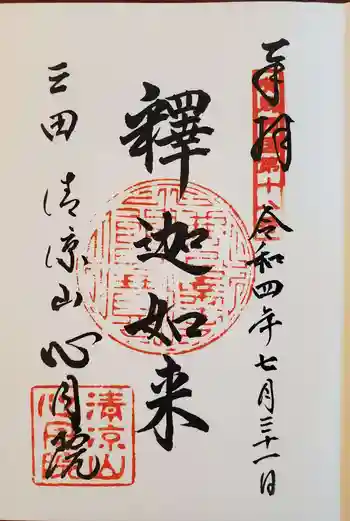 奉拝 令和四年七月三十一日
釋迦如来
三田 清凉山 心月院
清凉山
心月院